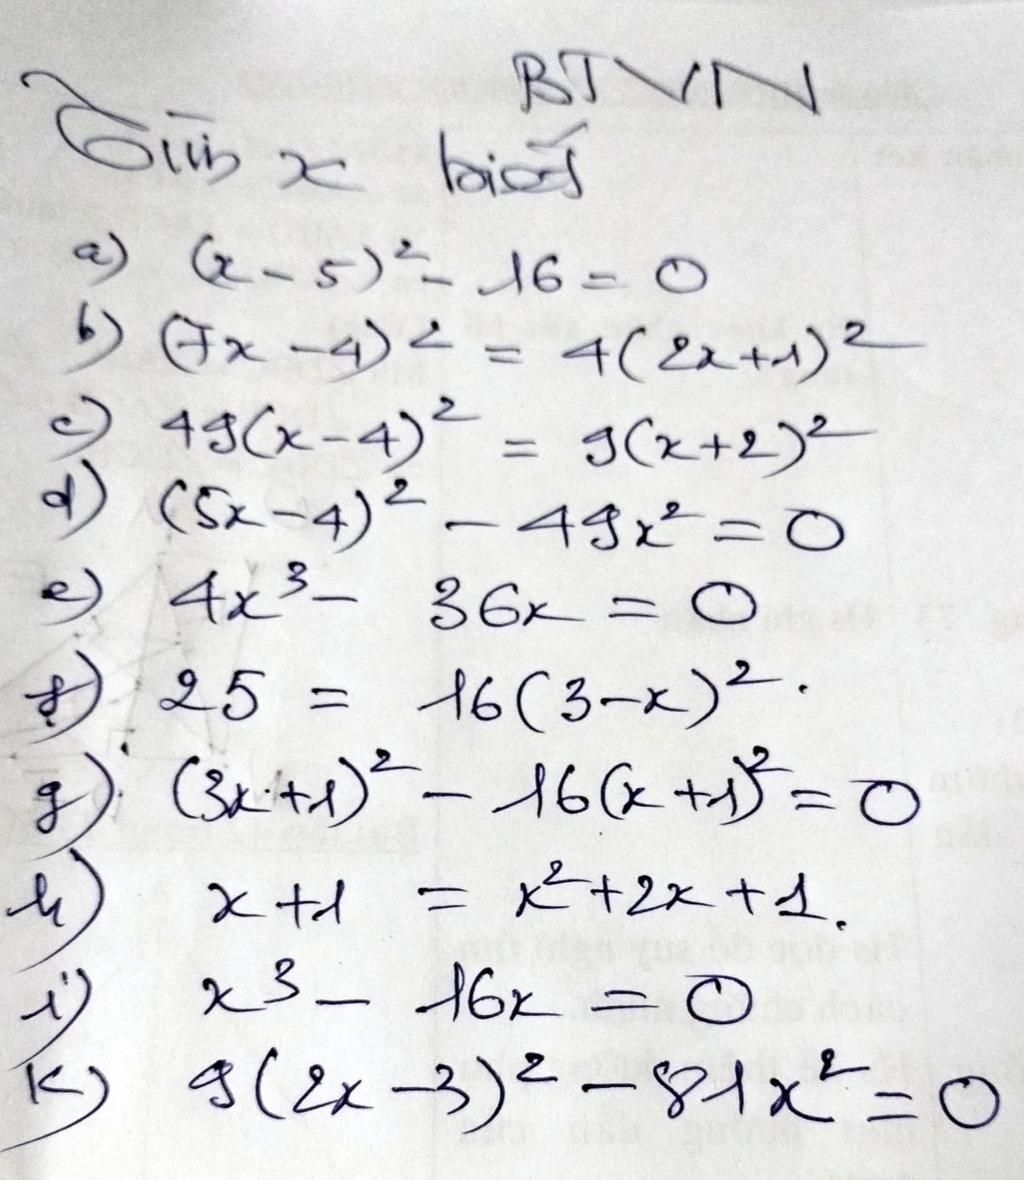 BTVN
Tìm x biết
a) (x - 5)² - 16 = 0
b) (7x - 4)² = 4(2x + 1)²
c) 49(x - 4)² = 9(x + 2)²
d) (5x - 4)² - 49x² = 0
e) 4x³ - 36x = 0
f) 25 = 16(3 - x)².
g) (3x + 1)² - 16(x + 1)² = 0
h) x + 1 = x² + 2x + 1.
i) x³ - 16x = 0
k) 9(2x - 3)² - 81x² = 0